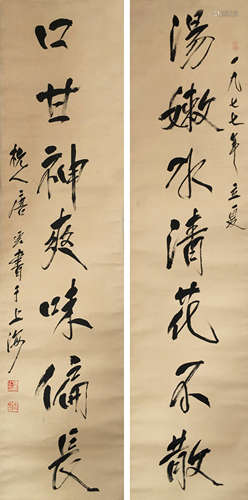 湯嫩水清花不散
一九七七年立夏
口甘神爽味偏長
杭人唐雲書于上海